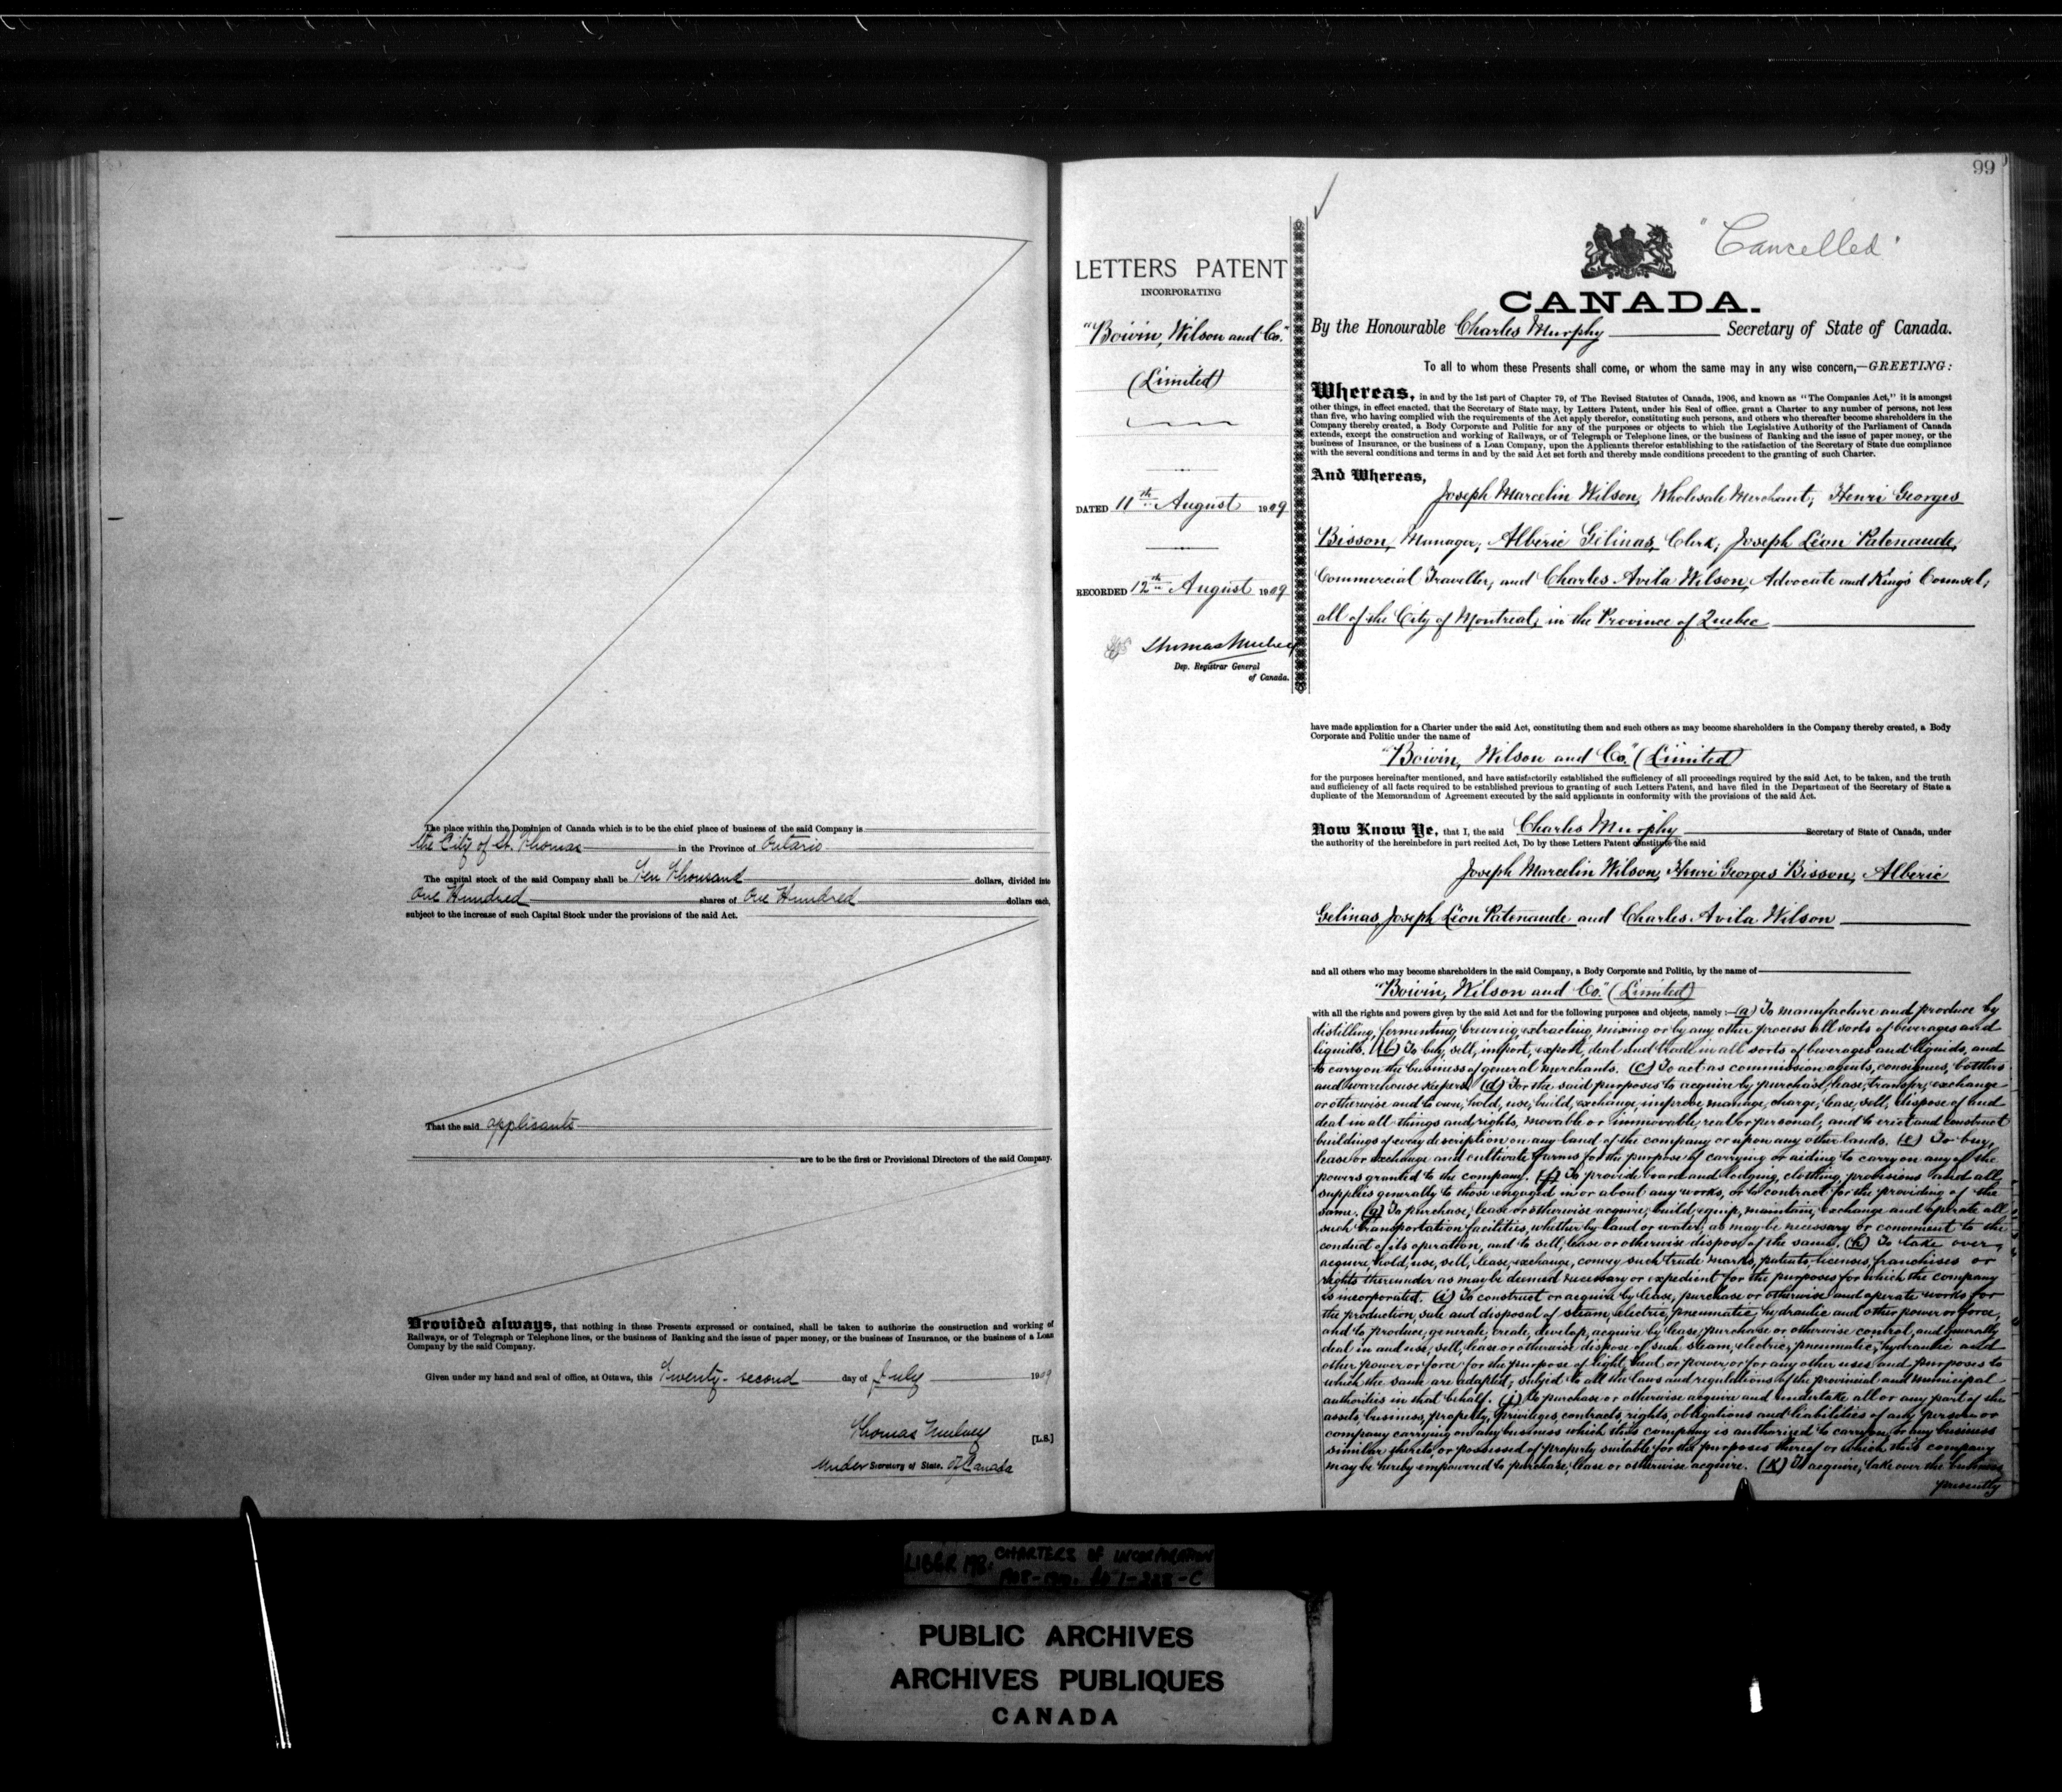 The place within the Dominion of Canada which is to be the chief place of business of the said Company is
the City of St. Thomas in the Province of Ontario
The capital stock of the said Company shall be Ten Thousand dollars, divided into
One Hundred shares of One Hundred dollars each,
subject to the increase of such Capital Stock under the provisions of the said Act.
That the said applicants
are to be the first or Provisional Directors of the said Company.
Provided always, that nothing in these Presents expressed or contained, shall be taken to authorize the construction and working of
Railways, or of Telegraph or Telephone lines, or the business of Banking and the issue of paper money, or the business of Insurance, or the business of a Loan
Company by the said Company.
Given under my hand and seal of office, at Ottawa, this Twenty-second day of July 1909
Thomas Mulvey [L.S.]
Under Secretary of State. Of Canada
99
"Cancelled"
LETTERS PATENT
INCORPORATING
"Boivin, Wilson and Co."
(Limited)
DATED 11th August 1909
RECORDED 12th August 1909
Thomas Mulvey
Dep. Registrar General
of Canada.
CANADA.
By the Honourable Charles Murphy Secretary of State of Canada.
To all to whom these Presents shall come, or whom the same may in any wise concern,—GREETING:
Whereas, in and by the 1st part of Chapter 79, of The Revised Statutes of Canada, 1906, and known as "The Companies Act," it is amongst
other things, in effect enacted, that the Secretary of State may, by Letters Patent, under his Seal of office, grant a Charter to any number of persons, not less
than five, who having complied with the requirements of the Act apply therefor, constituting such persons, and others who thereafter become shareholders in the
Company thereby created, a Body Corporate and Politic for any of the purposes or objects to which the Legislative Authority of the Parliament of Canada
extends, except the construction and working of Railways, or of Telegraph or Telephone lines, or the business of Banking and the issue of paper money, or the
business of Insurance, or the business of a Loan Company, upon the Applicants therefor establishing to the satisfaction of the Secretary of State due compliance
with the several conditions and terms in and by the said Act set forth and thereby made conditions precedent to the granting of such Charter.
And Whereas,
Joseph Marcelin Wilson, Wholesale Merchant; Henri Georges
Bisson, Manager; Albéric Gélinas, Clerk; Joseph Léon Patenaude,
Commercial Traveller; and Charles Avila Wilson, Advocate and King's Counsel;
all of the City of Montreal, in the Province of Quebec
have made application for a Charter under the said Act, constituting them and such others as may become shareholders in the Company thereby created, a Body
Corporate and Politic under the name of
"Boivin, Wilson and Co." (Limited)
for the purposes hereinafter mentioned, and have satisfactorily established the sufficiency of all proceedings required by the said Act, to be taken, and the truth
and sufficiency of all facts required to be established previous to granting of such Letters Patent, and have filed in the Department of the Secretary of State a
duplicate of the Memorandum of Agreement executed by the said applicants in conformity with the provisions of the said Act.
Now Know Ye, that I, the said Charles Murphy Secretary of State of Canada, under
the authority of the hereinbefore in part recited Act, Do by these Letters Patent constitute the said
Joseph Marcelin Wilson, Henri Georges Bisson, Albéric
Gelinas, Joseph Léon Patenaude and Charles Avila Wilson
and all others who may become shareholders in the said Company, a Body Corporate and Politic, by the name of
"Boivin, Wilson and Co." (Limited)
with all the rights and powers given by the said Act and for the following purposes and objects, namely:—(a) To manufacture and produce by
distilling, fermenting, brewing, extracting, mixing or by any other process all sorts of beverages and
liquids. (b) To buy, sell, import, export, deal and trade in all sorts of beverages and liquids, and
to carry on the business of general merchants. (c) To act as commission agents, consignees, bottlers
and warehouse keepers. (d) For the said purposes to acquire by purchase, lease, transfer, exchange
or otherwise and to own, hold, use, build, exchange, improve, manage, charge, lease, sell, dispose of and
deal in all things and rights, movable or immovable, real or personal, and to erect and construct
buildings of every description on any land of the company or upon any other lands. (e) To buy,
lease or exchange and cultivate farms for the purpose of carrying or aiding to carry on any of the
powers granted to the company. (f) To provide board and lodging, clothing, provisions and all
supplies generally to those engaged in or about any works, or to contract for the providing of the
same. (g) To purchase, lease or otherwise acquire, build, equip, maintain, exchange and operate all
such transportation facilities, whether by land or water, as may be necessary or convenient to the
conduct of its operation, and to sell, lease or otherwise dispose of the same. (h) To take over,
acquire, hold, use, sell, lease, exchange, convey such trade marks, patents, licenses, franchises or
rights thereunder as may be deemed necessary or expedient for the purposes for which the company
is incorporated. (i) To construct or acquire by lease, purchase or otherwise and operate works for
the production, sale and disposal of steam, electric, pneumatic, hydraulic and other power or force,
and to produce, generate, create, develop, acquire by lease, purchase or otherwise control, and generally
deal in and use, sell, lease or otherwise dispose of such steam, electric, pneumatic, hydraulic and
other power or force for the purpose of light, heat or power, or for any other uses and purposes to
which the same are adapted; subject to all the laws and regulations of the provincial and municipal
authorities in that behalf. (j) To purchase or otherwise acquire and undertake all or any part of the
assets, business, property, privileges, contracts, rights, obligations and liabilities of any person or
company carrying on any business which this company is authorized to carry on, or any business
similar thereto, or possessed of property suitable for the purposes thereof or which this company
may be hereby empowered to purchase, lease or otherwise acquire. (k) To acquire, take over the business
presently
LIBER 172. CHARTERS OF INCORPORATION
PUBLIC ARCHIVES
ARCHIVES PUBLIQUES
CANADA